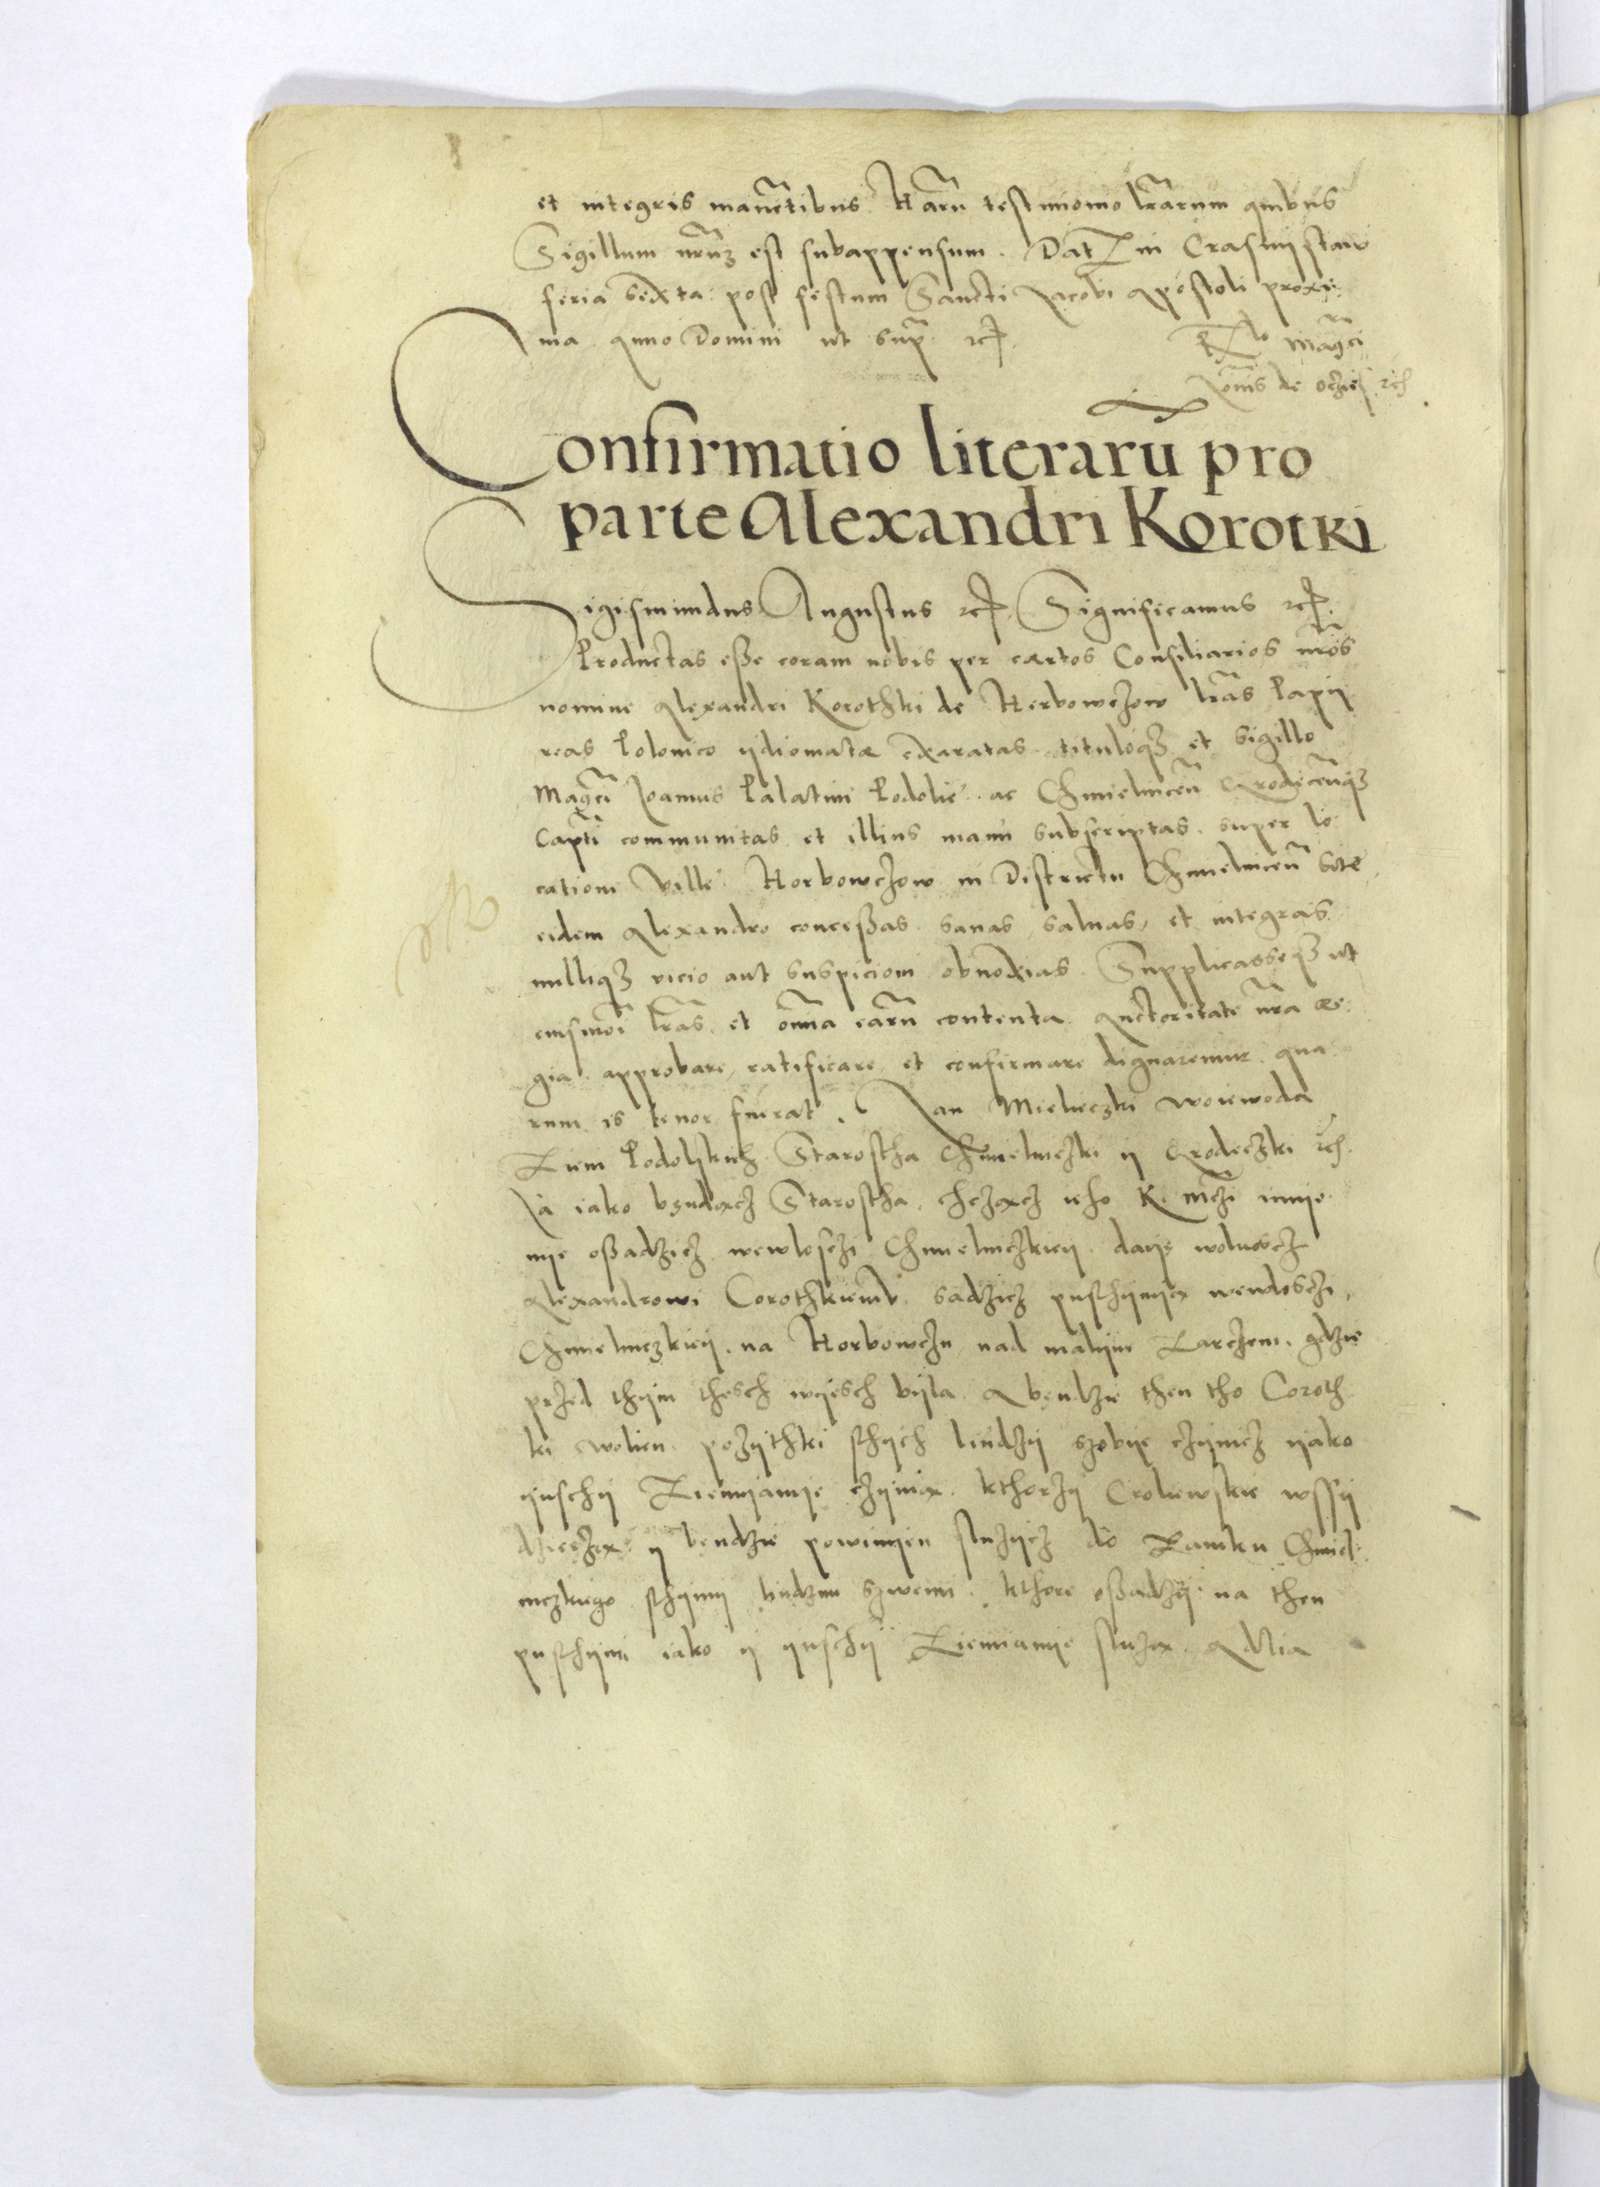 et integris manentibus. Harū testimonio lrārum quibus
Sigillum nrūm est subappensum. Dat in Crasnystaw
feria sexta post festum Sancti Jacobi Apostoli proxi:
ma Anno Domini ut supr. etc.
Rlo Magci
Joānis de oczie etc
Confirmatio literarū pro
parte Alexandri Korotki
Sigismundus Augustus etc. Significamus etc.
Productas esse coram nobis per certos Consiliarios nrōs
nomine Alexandri Korothki de Horbowczow lrās Papy
reas Polonico ydiomate exaratas tituloqз et sigillo
Magci Joannis Palatini Podolie ac Chmielnicen Grodecenqз
Capti communitas et illius manu subscriptas super lo
cationi Ville Horbowczow in Districtu Chmielnicen site
eidem Alexandro concessas sanas saluas, et integras
nulliqз vicio aut suspicioni obnoxias. Supplicasseqз ut
eiusmōi lrās et omnia earū contenta Auctoritate nrā Re:
gia approbare, ratificare et confirmare dignaremur. qua
rum is tenor fuerat. Jan Mieleczki woiewoda
Ziem Podolskich Starostha Chmielniczki y Grodeczki etc.
Ja iako bendącz Starostha, chcząc ieho K. Mczi imie
nie ossadzicz wewlosczi Chmielniczkiey daię wolnoscz
Alexandrowi Corothkiemv sadzicz pusthynię wewlosczi,
Chmielniczkiey. na Horbowczu nad malym Zarczem. gdzie
przed thym thesch wyesch byla. A bendzie then tho Coroth
ki wolien pozythki sthych liudzy szobye czynicz yako
ynschy Ziemianye czynią kthorzy Croliewskie wssy
dzierzą. y bendzie powinyen sluzycz do Zamku Chmiel:
niczkiego sthymy liudzmi szwemi. kthore ossadzy na then
pusthyni iako y ynschy Ziemianye sluzą. A dlia